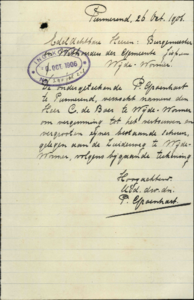 Purmerend, 26 Oct. 1906.
Edelachtbare Heeren: Burgemeester
Wethouders der Gemeente
Wijde-Wormer
OCT. 1906
De ondergeteekende P. Spaenhart
te Purmerend, verzoekt namens den
Heer C. de Boer te Wijde-Wormer
om vergunning tot het verbouwen en
vergrooten zijner bestaande schuur,
gelegen aan de Zuiderweg te Wijde-
Wormer, volgens bijgaande teekening
Hoogachtend
UEd. dw. dn.
P. Spaenhart.